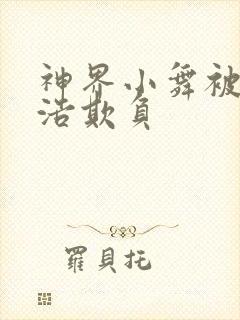 神界小舞被
浩欺负
羅貝托